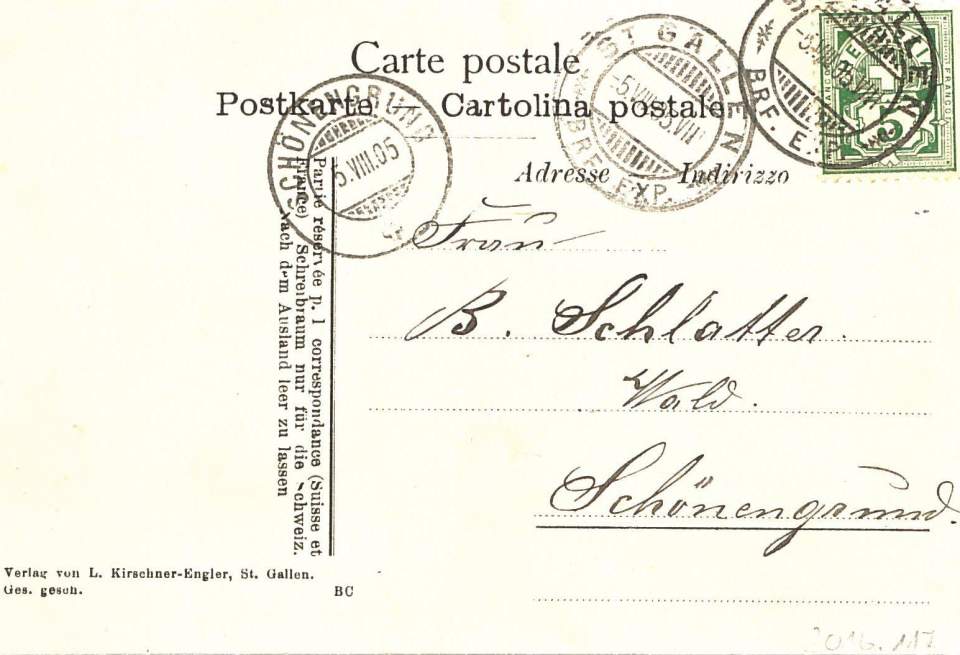 Carte postale
Postkarte — Cartolina postale
Adresse Indirizzo
SCHÖNENGRUND
5.VIII.05
ST GALLEN
-5.VIII
BRF. EXP.
BRF. EXP.
FRANCO
5
Partie réservée p. l correspondance (Suisse et
France) Schreibraum nur für die Schweiz.
Nach dem Ausland leer zu lassen
Frau
B. Schlatter.
Wald.
Schönengrund.
Verlag von L. Kirschner-Engler, St. Gallen.
Ges. gesch.
BC
2016.117